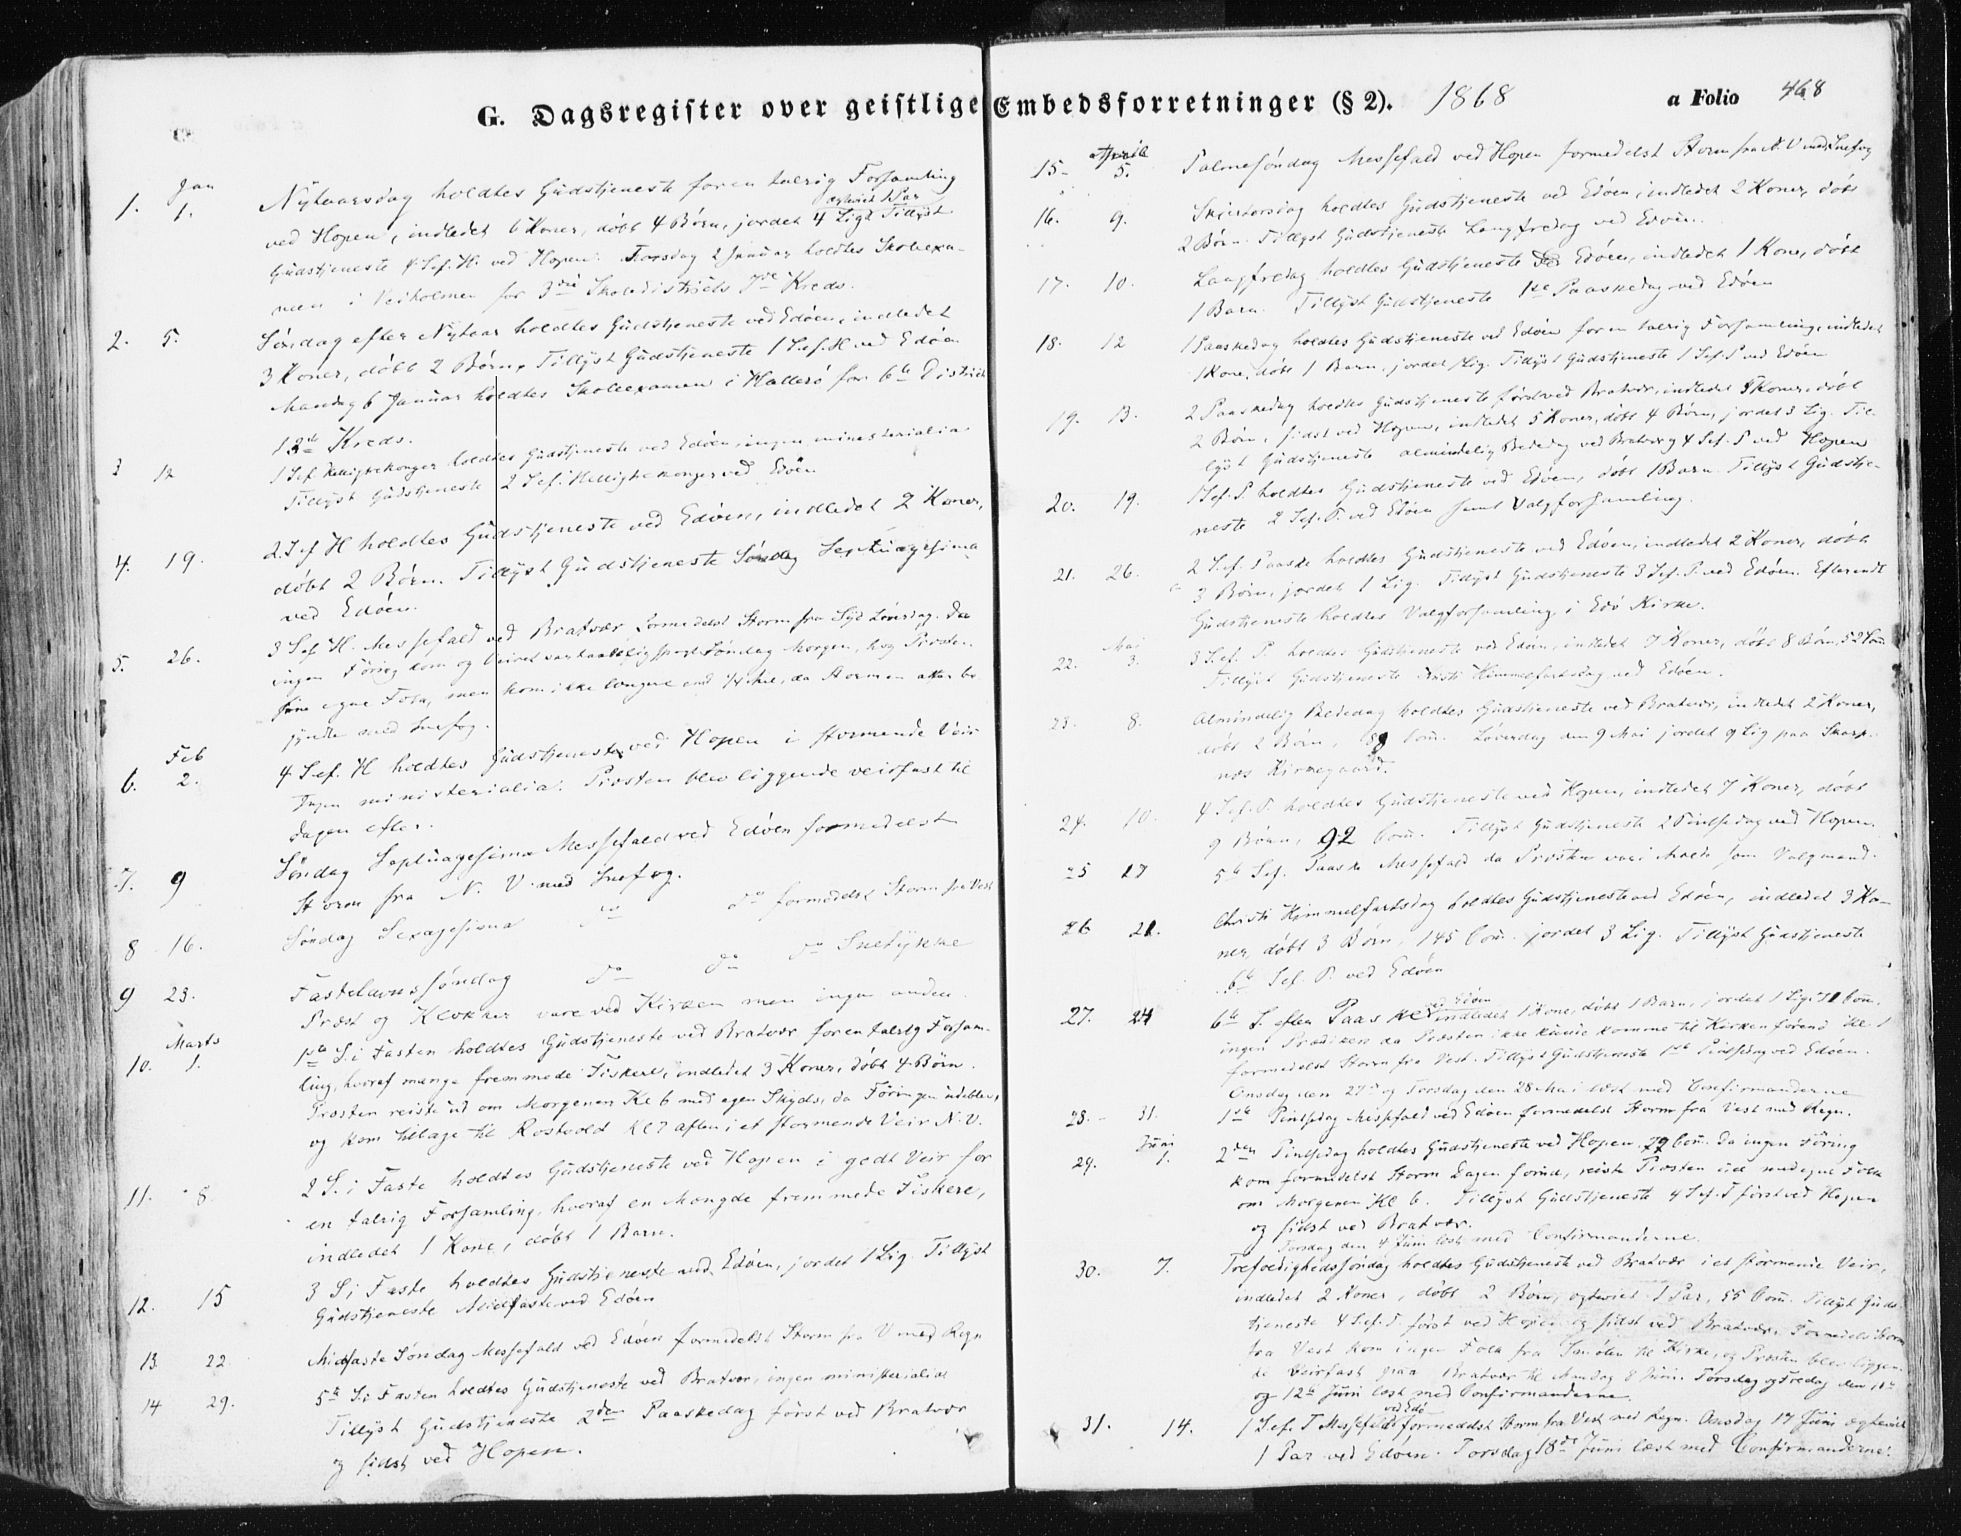 G. Dagsregister over geistlige Embedsforretninger (§ 2). 1868 a Folio 468
Jan
1. 1. Nytaarsdag holdtes Gudstjeneste for en talrig Forsamling
ægteviet 1 Par
ved Hopen, indledet 6 Koner, döbt 4 Börn, jordet 4 Lig. Tillyst
Gudstjeneste 4 S. ef. H. ved Hopen. Torsdag 2 Januar holdtes Skolexa-
men i Veiholmen for 3die Skoledistricts 7de Kreds.
2. 5. Söndag efter Nytaar holdtes Gudstjeneste ved Edöen, indledet
3 Koner, döbt 2 Börn. Tillyst Gudstjeneste 1 S. ef. H. ved Edöen
Mandag 6 Januar holdtes Skolexamen i Hallerö for 6te District
12te Kreds.
3 12 1 S. ef. Helligtrekonger holdtes Gudstjeneste ved Edöen, ingen ministerialia.
Tillyst Gudstjeneste 2 S. ef. Helligtrekonger ved Edöen
4. 19. 2. S. ef H holdtes Gudstjeneste ved Edöen, indledet 2 Koner,
döbt 2 Börn. Tillyst Gudstjeneste Söndag Septuagesima
ved Edöen.
5. 26. 3 S. ef H. Messefald ved Bratvær formedelst Storm fra Syd Löverdag. Da
ingen Föring kom og Veiret var taaleligt Söndag Morgen, tog Prosten
sine egne Folk, men kom ikke længere end 1/4 Mil, da Stormen atter be-
gyndte med Snefog.
Feb
6. 2. 4 S. ef. H holdtes Gudstjeneste ved Hopen i stormende Veir
Ingen ministerialia. Prosten blev liggende veirfast til
Dagen efter.
7. 9 Söndag Septuagesima Messefald ved Edöen formedelst
Storm fra N. V. med Snefog.
8 16. Söndag Sexagesima do do formedelst Storm fra Vest
9 23. Fastelavnssöndag do do do Snetykke
Præst og Klokker vare ved Kirken men ingen anden.
Marts
10. 1. 1ste S. i Fasten holdtes Gudstjeneste ved Bratvær for en talrig Forsam-
ling, hvoraf mange fremmede Fiskere, indledet 3 Koner, döbt 4 Börn.
Prosten reiste ud om Morgenen Kl 6 med egen Skyds, da Föringen udeblev,
og kom tilbage til Rostvold Kl 7 aften i et stormende Veir N. V.
11. 8. 2 S. i Faste holdtes Gudstjeneste ved Hopen i godt Veir for
en talrig Forsamling, hvoraf en Mængde fremmede Fiskere,
indledet 1 Kone, döbt 1 Barn.
12. 15 3 S. i Faste holdtes Gudstjeneste ved Edöen, jordet 1 Lig. Tillyst
Gudstjeneste Midfaste ved Edöen
13. 22. Midfaste Söndag Messefald ved Edöen formedelst Storm fra V med Regn
14 29. 5te S. i Fasten holdtes Gudstjeneste ved Bratvær, ingen ministerialia
Tillyst Gudstjeneste 2den Paaskedag först ved Bratvær
og sidst ved Hopen.
April
15 5. Palmesöndag Messefald ved Hopen formedelst Storm fra N. V med Snefog
16. 9. Skjertorsdag holdtes Gudstjeneste ved Edöen, indledet 2 Koner, döbt
2 Börn. Tillyst Gudstjeneste Langfredag ved Edöen.
17. 10. Langfredag holdtes Gudstjeneste Edöen, indledet 1 Kone, döbt
1 Barn. Tillyst Gudstjeneste 1ste Paaskedag ved Edöen
18. 12 1 Paaskedag holdtes Gudstjeneste ved Edöen for en talrig Forsamling, indledet
1 Kone, döbt 1 Barn, jordet 1 Lig. Tillyst Gudstjeneste 1 S. ef. P ved Edöen
19. 13. 2 Paaskedag holdtes Gudstjeneste först ved Bratvær, indledet Koner, döbt
2 Börn, sidst ved Hopen, indledet 5 Koner, döbt 4 Börn, jordet 3 Lig. Til-
lyst Gudstjeneste almindelig Bededag ved Bratvær og 4 S. ef. P ved Hopen
20. 19. 1 S. ef. P. holdtes Gudstjeneste ved Edöen, döbt 1 Barn. Tillyst Gudstje-
neste 2 S. ef. P. ved Edöen samt Valgforsamling.
21. 26. 2 S. ef. Paaske holdtes Gudstjeneste ved Edöen, indledet 2 Koner, döbt
3 Börn, jordet 1 Lig. Tillyst Gudstjeneste 3 S. ef. P. ved Edöen. Efter endt
Gudstjeneste holdtes Valgforsamling i Edö Kirke.
Mai
22. 3. 3 S. ef. P. holdtes Gudstjeneste ved Edöen, indledet 7 Koner, döbt 8 Börn, 52 Com.
Tillyst Gudstjeneste Kristi Himmelfartsdag ved Edöen.
23. 8. Almindelig Bededag holdtes Gudstjeneste ved Bratvær, indledet 2 Koner,
döbt 2 Börn, Com. Löverdag den 9 Mai jordet 9 Lig paa Skarp-
nes Kirkegaard.
24. 10. 4 S. ef. P. holdtes Gudstjeneste ved Hopen, indledet 7 Koner, döbt
9 Börn, 92 Com. Tillyst Gudstjeneste 2 Pintsedag ved Hopen.
25 17 5te S. ef. Paaske Messefald da Prosten var i Molde som Valgmand.
26 21. Christi Himmelfartsdag holdtes Gudstjeneste ved Edöen, indledet 3 Ko-
ner, döbt 3 Börn, 145 Com. jordet 3 Lig. Tillyst Gudstjeneste
6te S. ef. P. ved Edöen
ved Edöen
27. 24 6te S. efter Paaske indledet 1 Kone, döbt 1 Barn, jordet 1 Lig, 71 Com.
ingen Prædiken da Prosten ikke kunde komme til Kirken förend Kl 1
formedelst Storm fra Vest. Tillyst Gudstjeneste 1ste Pintsedag ved Edöen.
Onsdag den 27de og Torsdag den 28 Mai læst med Confirmanderne
28. 31. 1ste Pintsedag Messefald ved Edöen formedelst Storm fra Vest med Regn.
Juni
29. 1. 2den Pintsedag holdtes Gudstjeneste ved Hopen, 72 Com. Da ingen Föring
kom formedelst Storm Dagen forud, reiste Prosten ud med egne Folk
om Morgenen Kl 6. Tillyst Gudstjeneste 4 S. ef. T först ved Hopen
og sidst ved Bratvær.
Torsdag den 4 Juni læst med Confirmanderne.
30. 7. Trefoldighedssöndag holdtes Gudstjeneste ved Bratvær i et stormende Veir,
indledet 2 Koner, döbt 2 Börn, ægteviet 1 Par, 55 Com. Tillyst Guds-
tjeneste 4 S. ef. T. först ved Hopen og sidst ved Bratvær. Formedelst Storm
fra Vest kom ingen Folk fra Smölen til Kirke, og Prosten blev liggen-
de Veirfast paa Bratvær til Mandag 8 Juni. Torsdag og Fredag den 11te
og 12te Juni læst med Confirmanderne
ved Edö
31. 14. 1 S. ef. T Messefald formedelst Storm fra Vest med Regn. Onsdag 17 Juni ægteviet
1 Par ved Edöen. Torsdag 18de Juni læst med Confirmanderne.